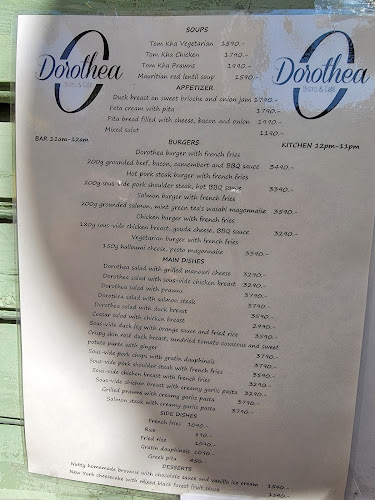 SOUPS
Tom Kha Vegetarian 1590.-
Tom Kha Chicken 1790.-
Tom Kha Prawns 1990.-
Mauritian red lentil soup 1590.-
Dorothea
Bistro & Café
Dorothea
Bistro & Café
APPETIZER
Duck breast on sweet brioche and onion jam 1790.-
Feta cream with pita 1790.-
Pita bread filled with cheese, bacon and onion 1990.-
Mixed salat 1190.-
BAR 11am-12am
BURGERS
KITCHEN 12pm-11pm
Dorothea burger with french fries
200g grounded beef, bacon, camembert and BBQ sauce 3490.-
Hot pork steak burger with french fries
200g sous-vide pork shoulder steak, hot BBQ sauce 3390.-
Salmon burger with french fries
200g grounded salmon, mint green tea's wasabi mayonnaise 3590.-
Chicken burger with french fries
180g sous-vide chicken breast, gouda cheese, BBQ sauce 3290.-
Vegetarian burger with french fries
150g halloumi cheese, pesto mayonnaise 3390.-
MAIN DISHES
Dorothea salad with grilled manouri cheese 3290.-
Dorothea salad with sous-vide chicken breast 3290.-
Dorothea salad with prawns 3790.-
Dorothea salad with salmon steak 3790.-
Dorothea salad with duck breast 3590.-
Ceasar salad with chicken breast 2990.-
Sous-vide duck leg with orange sauce and fried rice 3590.-
Crispy skin rosé duck breast, sundried tomato couscous and sweet
potato purée with ginger 3790.-
Sous-vide pork chops with gratin dauphinois 3790.-
Sous-vide pork shoulder steak with french fries 3590.-
Sous-vide chicken breast with french fries 3290.-
Sous-vide chicken breast with creamy garlic pasta 3290.-
Grilled prawns with creamy garlic pasta 3790.-
Salmon steak with creamy garlic pasta 3790.-
SIDE DISHES
French fries 1090.-
Rice 990.-
Fried rice 1090.-
Gratin dauphinois 1090.-
Greek pita 490.-
DESSERTS
Nutty homemade brownie with chocolate sauce and vanilla ice cream 1590.-
New York cheesecake with mixed black forest fruit sauce 1590.-